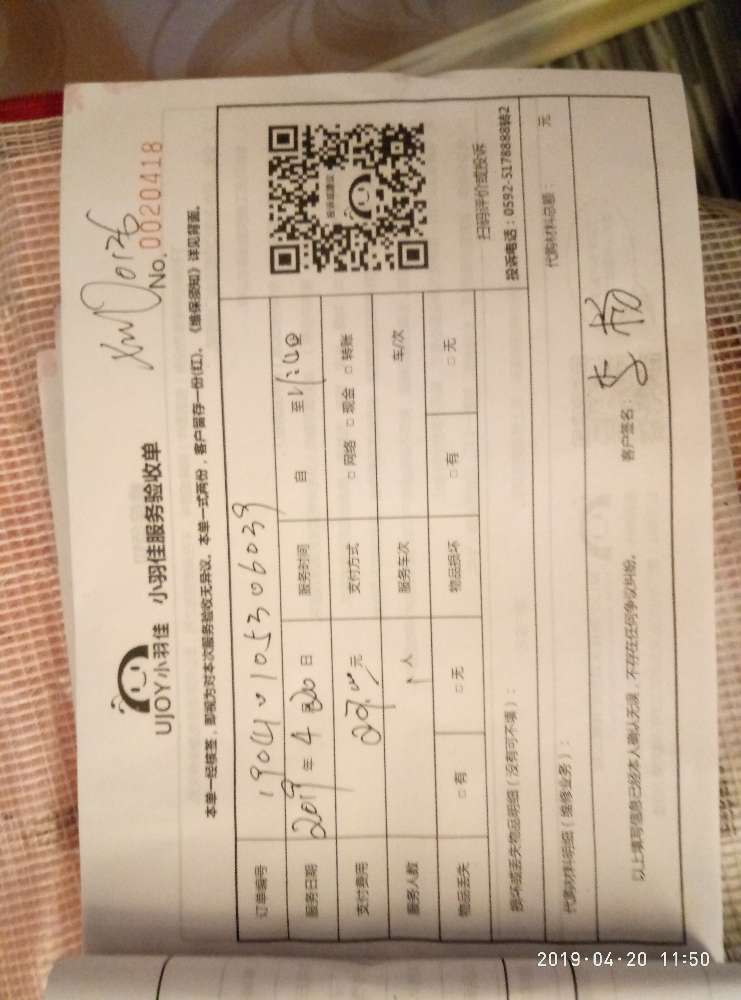 No. 0020418
UJOY小羽佳 小羽佳服务验收单
本单一经核签，即视为对本次服务验收无异议。本单一式两份，客户留存一份(红)。《维保须知》详见背面。
订单编号
服务日期 2019 年 4 月 20 日 服务时间 自 至 11:40
支付费用 元 支付方式 □ 网络 □ 现金 □ 转账
服务人数 1 人 服务车次 车/次
物品丢失 □ 有 □ 无 物品损坏 □ 有 □ 无
投诉或建议
扫码评价或投诉
投诉电话：0592-5178888转2
损坏或丢失物品明细（没有可不填）：
代购材料明细（维修业务）： 代购材料总额： 元
以上填写信息已经本人确认无误，不存在任何争议纠纷。 客户签名：李杨
2019-04-20 11:50